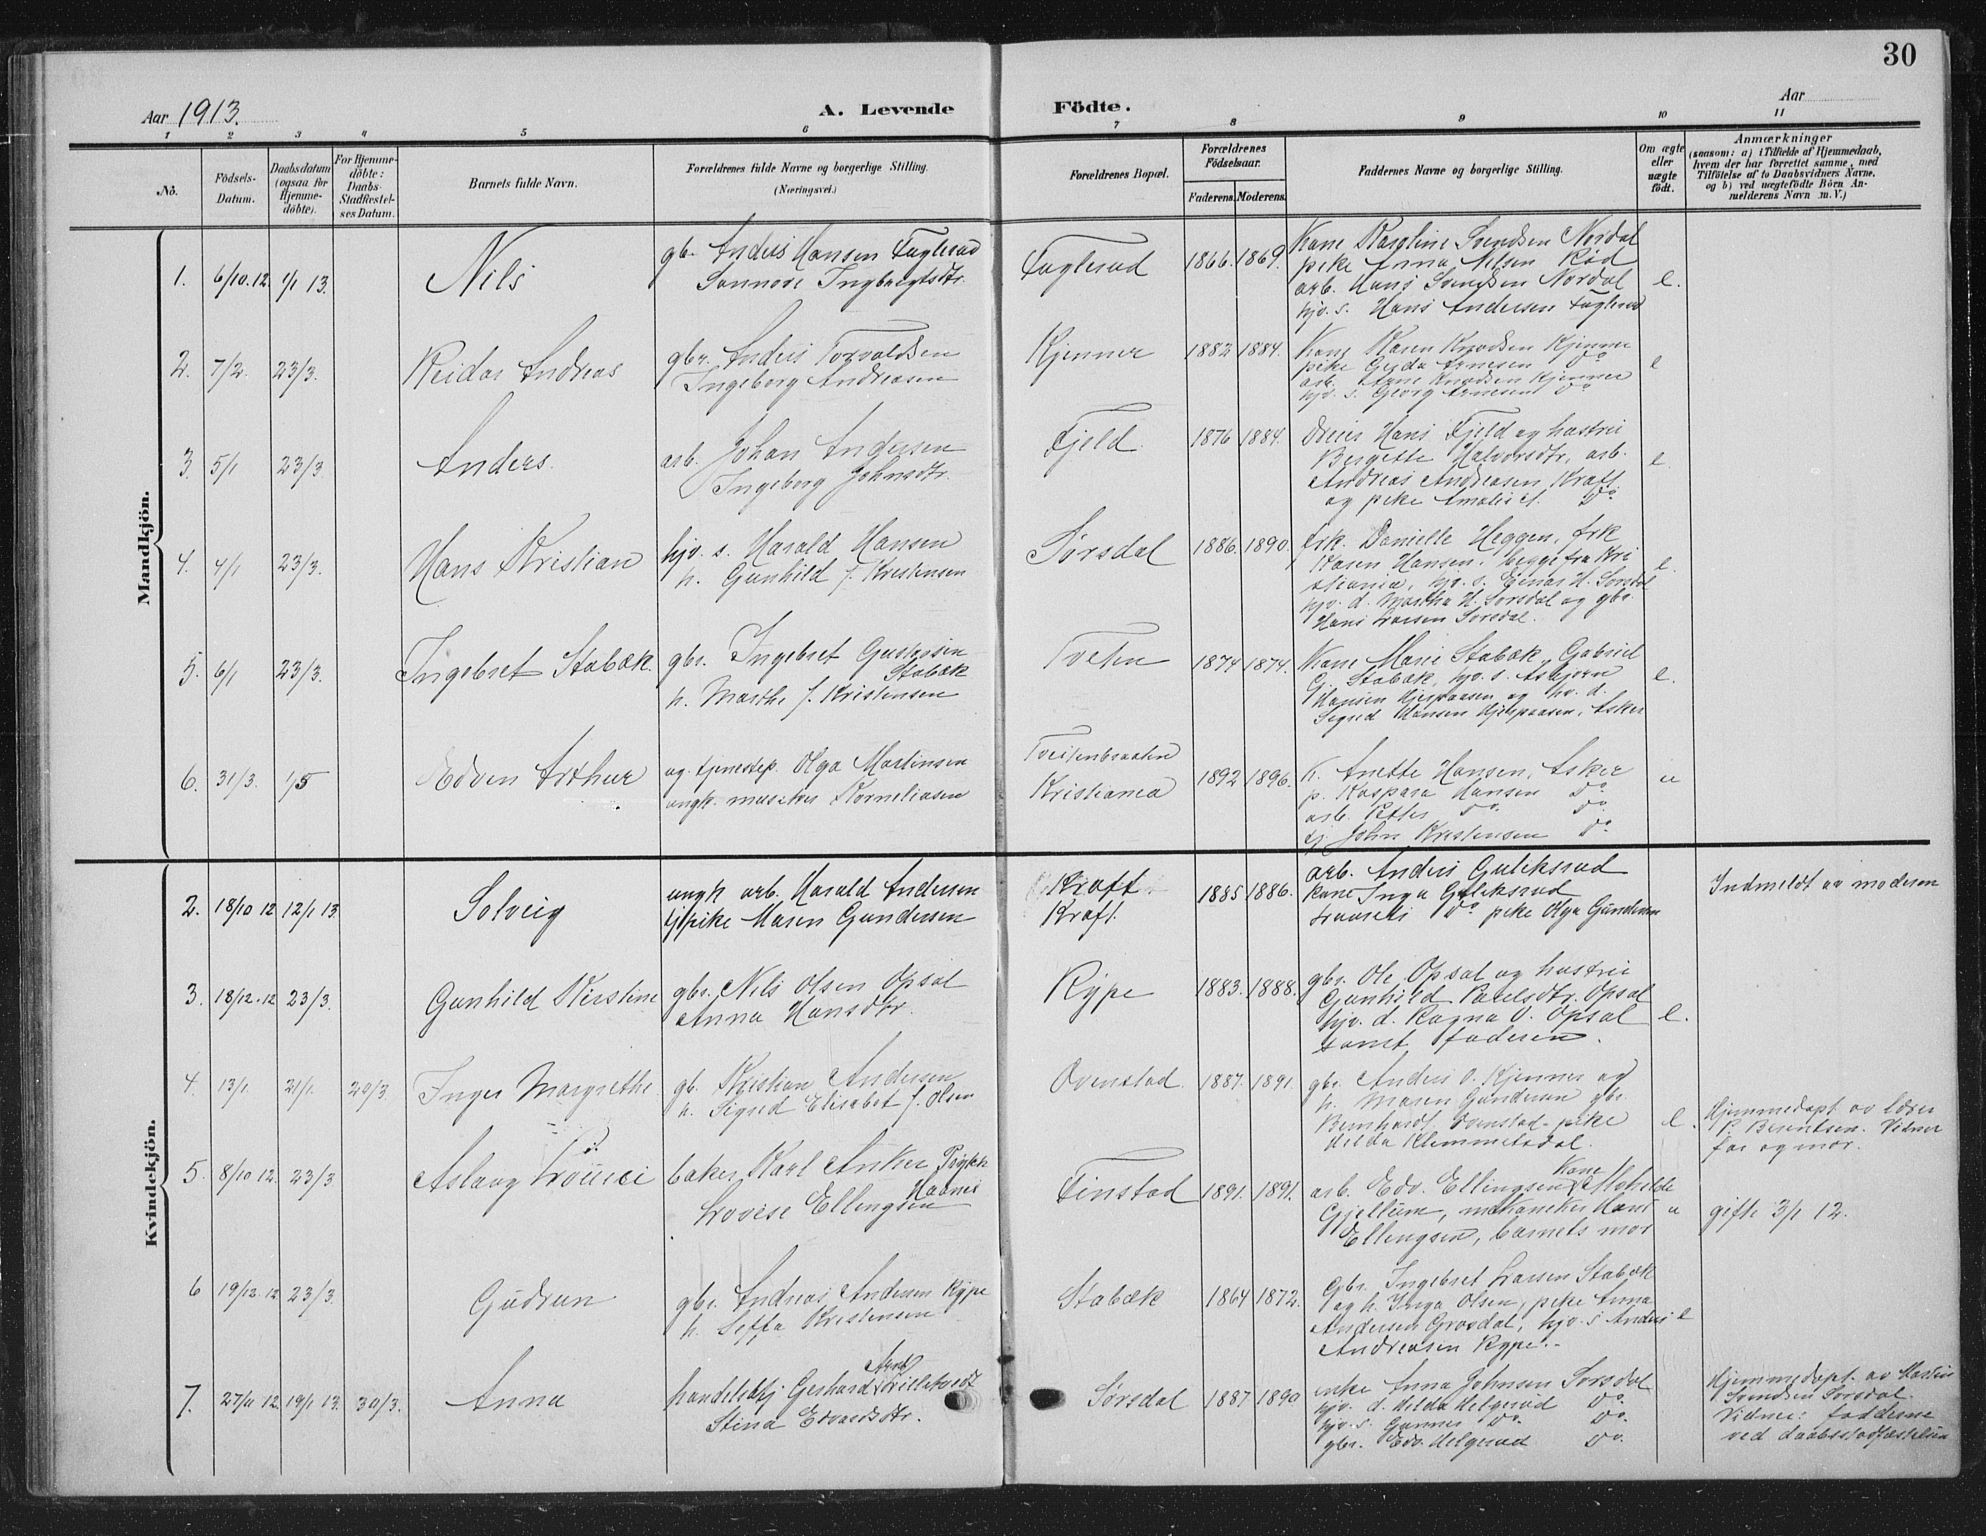 30
Aar 1913.
A. Levende Födte.
Aar
1 2 3 4 5 6 7 8 9 10 11
No.
Födsels-Datum.
Daabsdatum (ogsaa for Hjemme-döbte).
For Hjemme-döbte: Daabs-Stadfæstel-ses Datum.
Barnets fulde Navn.
Forældrenes fulde Navne og borgerlige Stilling. (Næringsvei.)
Forældrenes Bopæl.
Forældrenes Födselsaar.
Faderens. Moderens.
Faddernes Navne og borgerlige Stilling.
Om ægte eller uægte födt.
Anmærkninger
(saasom: a) i Tilfælde af Hjemmedaab,
hvem der har forrettet samme, med
Tilföielse af to Daabsvidners Navne,
og b) ved uægtefödte Börn An-
melderens Navn m. V.)
Mandkjön.
1. 6/10.12. 1/1 13. Nils
gb. Anders Hansen Fuglerud
Sonnove Ingbregtsdtr.
Fuglerud 1866. 1869.
Kone Karoline Svendsen Nordal
pike Anna Nilsen Rød
arb. Hans Svendsen Nordal
hjv. s. Hans Andersen Fuglerud
e.
2. 7/2. 23/3. Reidar Andreas
gbr. Anders Torvaldsen
Ingeborg Andreasen
Kjenner 1882 1884.
Kone Karen Knudsen Kjenner
pike Gyda Arnesen do
arb. Arne Knudsen Kjenner
hjv. s. Georg Arnesen do
e
3. 5/1 23/3. Anders.
arb. Johan Andersen
Ingeborg Johnsdtr.
Fjeld. 1876 1884.
Hans Fjeld og hustru
Bergette Halvorsdtr., arb.
Andreas Andreasen Kraft
og pike Amalie A. do
e.
4. 4/1 23/3. Hans Kristian
hjv. s. Harald Hansen
h. Gunhild f. Kristensen
Sørsdal 1886. 1890.
frk. Danielle Heggen, frk
Karen Hansen, begge fra Kri
stiania, hjv. s. Einar H. Sørsdal
hjv. d. Martha H. Sørsdal og gbr.
Hans Larsen Sørsdal.
e.
5. 6/1 23/3. Ingebret Stabæk.
gbr. Ingebret
Stabæk
h. Marthe f. Kristensen
Tveten 1874 1874.
Kone Marie Stabæk, Gabriel
G. Stabæk, hjv. s. Asbjørn
Hansen og hv. d.
Sigrid Hansen Asker
e.
6. 31/3. 1/5 Edvin Arthur
og tjenestep. Olga Martinsen
ungk. musiker Korneliusen
Tveitenbraaten
Kristiania
1892 1896.
K. Anette Hansen, Asker
p. Kaspara Hansen do
arb. Petter do. do.
tj John Kristensen do.
u
Kvindekjön.
2. 18/10 12 12/1 13. Solveig
ungk arb. Harald Andersen
tj pike Maren Gundersen
Kraft
Kraft.
1885 1886.
arb. Anders Guliksrud
kone Inga Guliksrud
do pike Olga Gundersen
Indmeldt av moderen
3. 18/12.12 23/3. Gunhild Kirstine
gbr. Nils Olsen Opsal
Anna Hansdtr.
Rype 1883. 1888.
gbr. Ole Opsal og hustru
Gunhild Paulsdtr. Opsal
hjv. d. Ragna O. Opsal
samt faderen.
e.
4. 13/1 21/1 29/3. Inger Margrethe
gb. Kristian Andersen
h. Sigrid Elisabet f. Olsen
Ovenstad. 1887. 1891.
gbr. Anders O. Kjenner og
h. Maren Gundersen gbr.
Bernhardt Ovenstad- pike
Hilda Klemmetsdal.
e.
Hjemmedøpt av lærer
P. Berntsen. Vidner
far og mor.
5. 8/10 12. 23/3 Aslaug Louise
baker Karl Anker
Lovise Ellingsen
Finstad 1891. 1891.
arb. Edv. Ellingsen Kone Mathilde
Gjellum, mekaniker Hans
Ellingsen, barnets mor
u
gifte 3/1 12.
6 19/12.12 23/3. Gudrun
gbr. Andreas Andersen Rype
h. Kristensen
Stabæk 1864 1872.
gbr. Ingebret Larsen Stabæk
og h. Inga Olsen, pike Anna
Andersen Grosdal, hjv. s Anders
Andreasen Rype.
e
7. 27/11 12. 19/1 13. 30/3. Anna
handelsbtj. Gerhard Arnt Lillekvedt
Stina Edvardsdtr.
Sørsdal 1887 1890
enke Anna Johnsen Sørsdal
hjv. d. Hilda Helgerud do.
hjv. s. Gunner do. do.
gbr. Edv. Helgerud do.
Hjemmedøpt. av Martin
Svendsen Sørsdal.
Vidner: fadderne
ved daabsstadfæstelsen